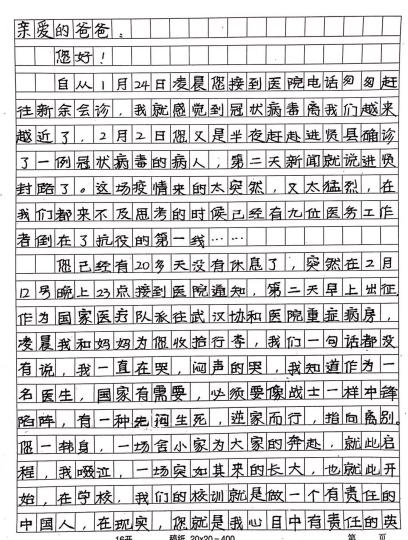 亲爱的爸爸：
您好！
自从1月24日凌晨您接到医院电话匆匆赶
往新余会诊，我就感觉到冠状病毒离我们越来
越近了，2月2日您又是半夜赶赴进贤县确诊
了一例冠状病毒的病人，第二天新闻就说进贤
封路了。这场疫情来的太突然，又太猛烈，在
我们都来不及思考的时候已经有九位医务工作
者倒在了抗役的第一线……
您已经有20多天没有休息了，突然在2月
12号晚上23点接到医院通知，第二天早上出征，
作为国家医疗队派往武汉协和医院重症病房，
凌晨我和妈妈为您收拾行李，我们一句话都没
有说，我一直在哭，闷声的哭，我知道作为一
名医生，国家有需要，必须要像战士一样冲锋
陷阵，有一种先河生死，逆家而行，指向离别。
您一转身，一场舍小家为大家的奔赴，就此启
程，我啜泣，一场突如其来的长大，也就此开
始，在学校，我们的校训就是做一个有责任的
中国人，在现实，您就是我心目中有责任的英
16开 稿纸 20×20=400 第 页